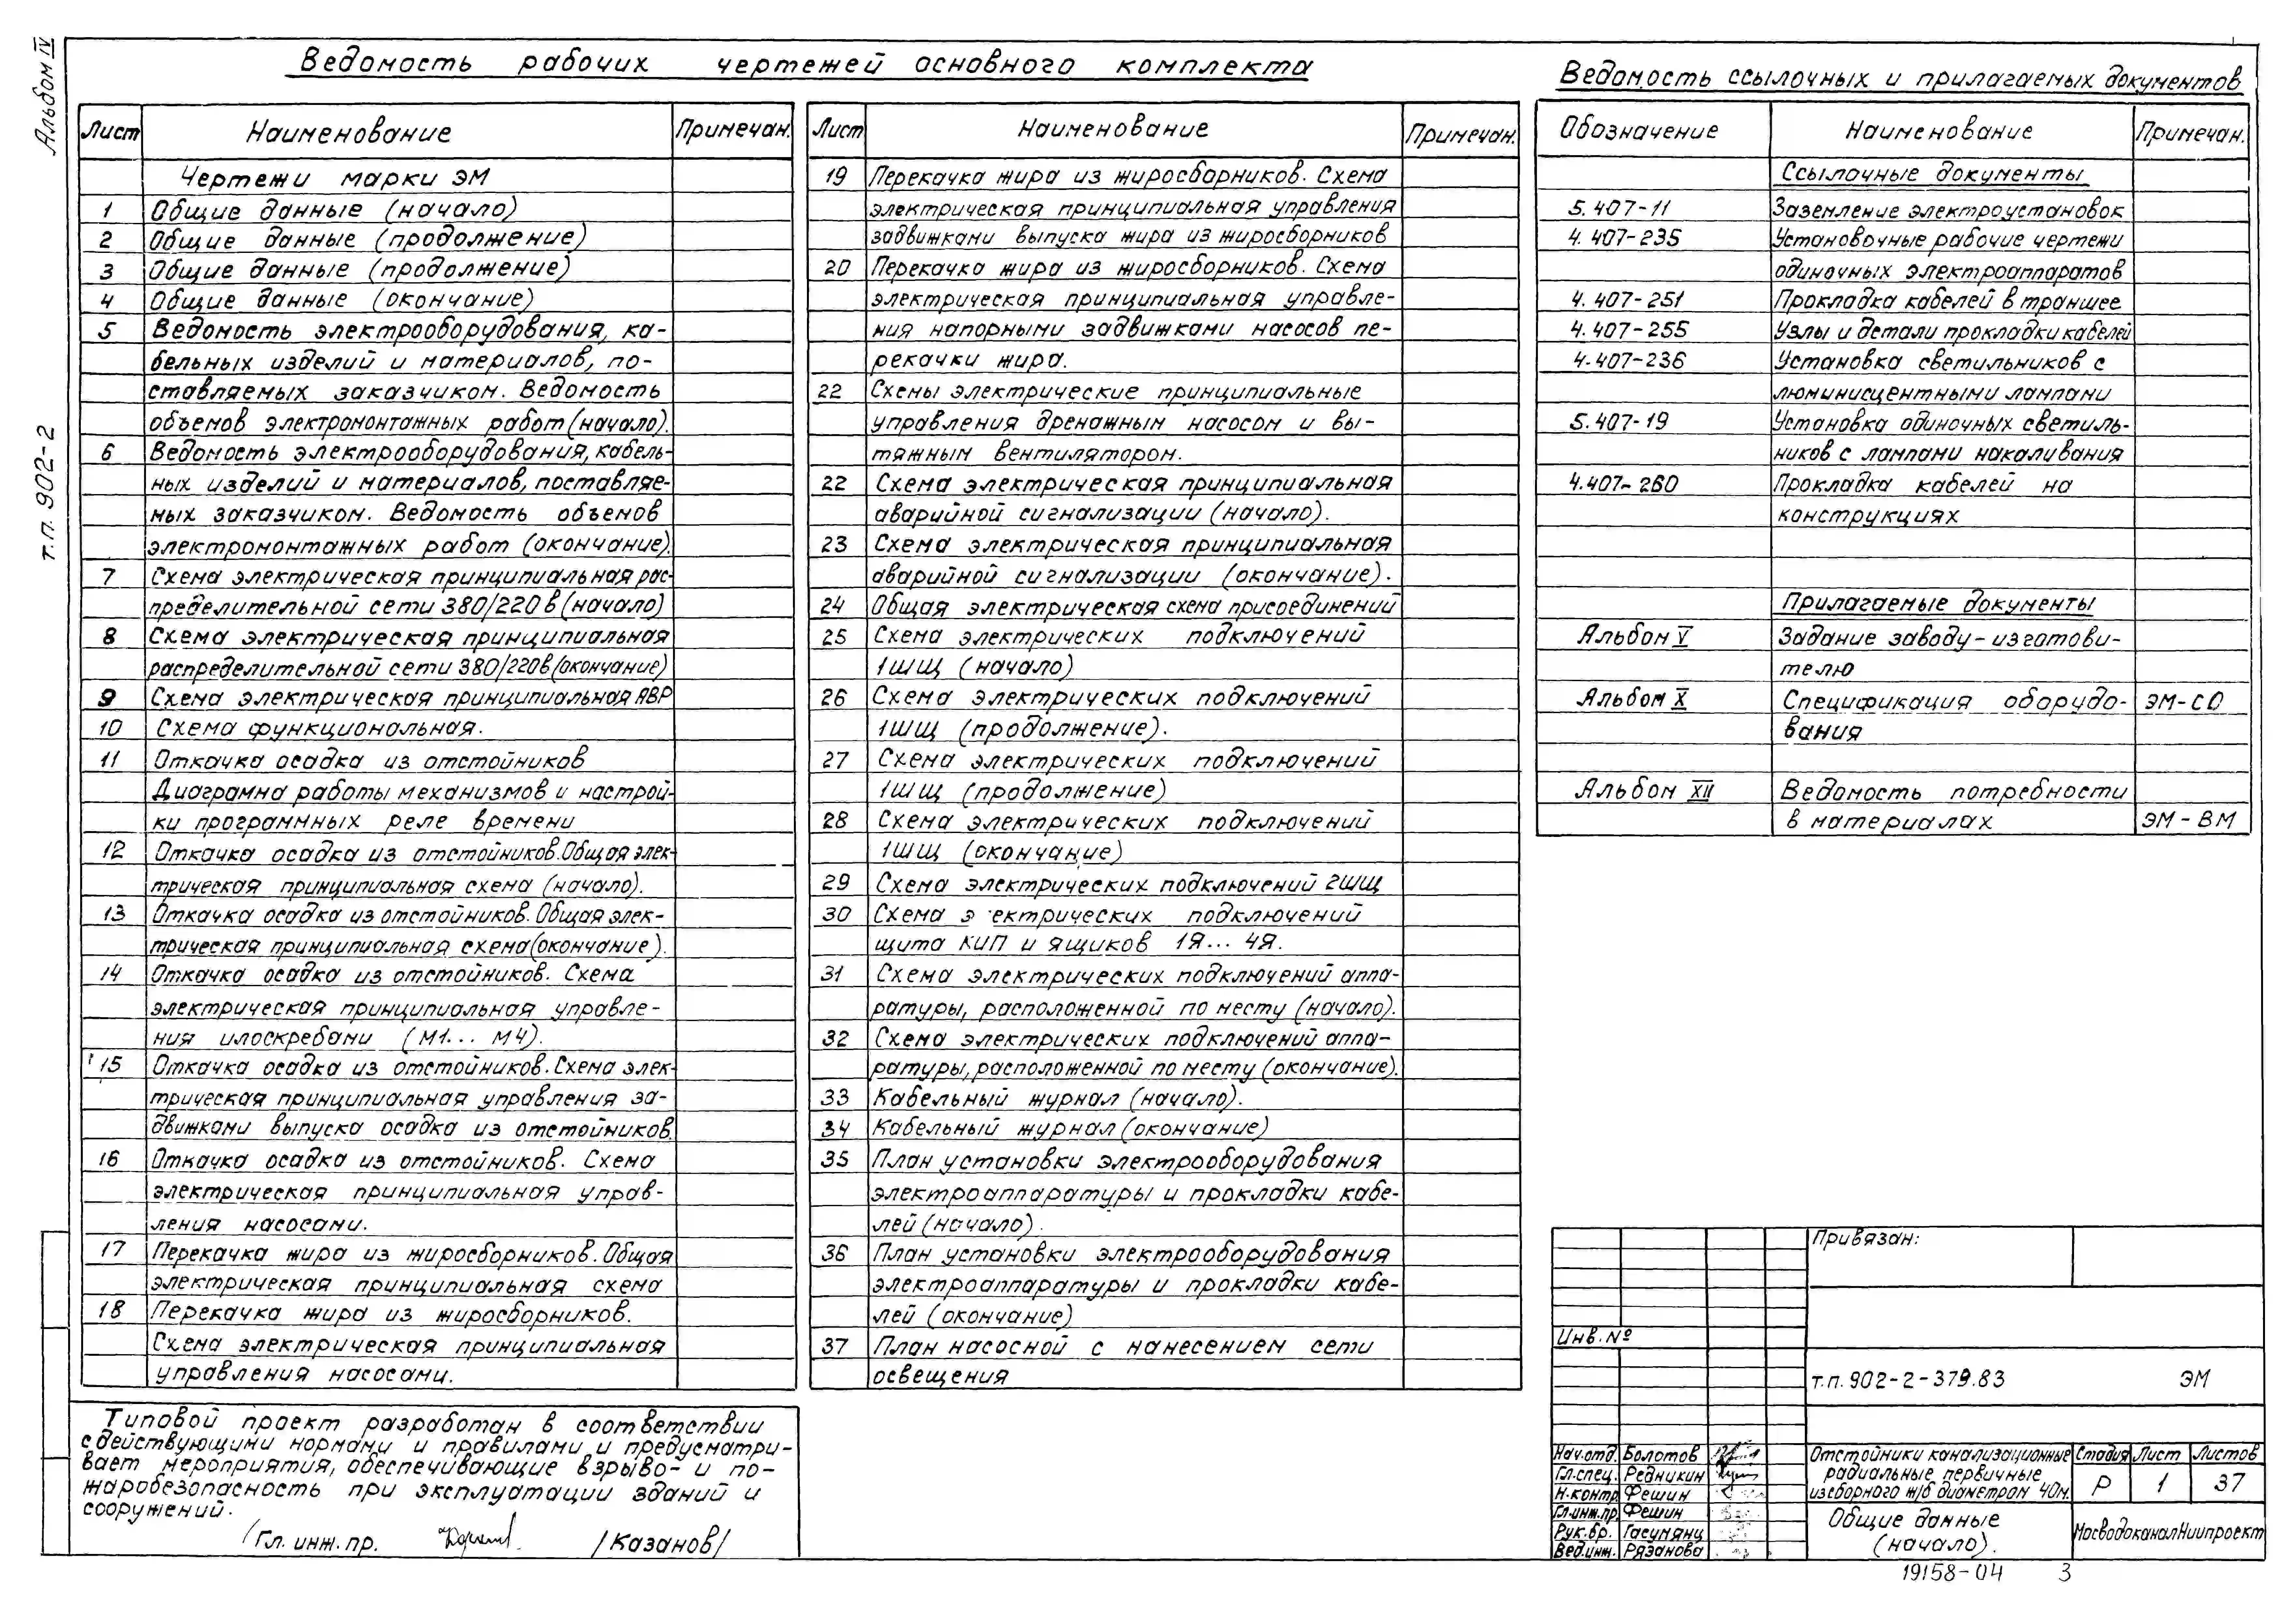 Альбом IV
т.п. 902-2
Ведомость рабочих чертежей основного комплекта
Лист Наименование Примечан.
Чертежи марки ЭМ
1 Общие данные (начало)
2 Общие данные (продолжение)
3 Общие данные (продолжение)
4 Общие данные (окончание)
5 Ведомость электрооборудования, ка-
бельных изделий и материалов, по-
ставляемых заказчиком. Ведомость
объемов электромонтажных работ (начало).
6 Ведомость электрооборудования, кабель-
ных изделий и материалов, поставляе-
мых заказчиком. Ведомость объемов
электромонтажных работ (окончание).
7 Схема электрическая принципиальная рас-
пределительной сети 380/220 в (начало)
8 Схема электрическая принципиальная
распределительной сети 380/220в (окончание)
9 Схема электрическая принципиальная АВР
10 Схема функциональная.
11 Откачка осадка из отстойников
Диаграмма работы механизмов и настрой-
ки программных реле времени
12 Откачка осадка из отстойников. Общая элек-
трическая принципиальная схема (начало).
13 Откачка осадка из отстойников. Общая элек-
трическая принципиальная схема (окончание).
14 Откачка осадка из отстойников. Схема
электрическая принципиальная управле-
ния илоскребами (М1... М4).
15 Откачка осадка из отстойников. Схема элек-
трическая принципиальная управления за-
движками выпуска осадка из отстойников.
16 Откачка осадка из отстойников. Схема
электрическая принципиальная управ-
ления насосами.
17 Перекачка жира из жиросборников. Общая
электрическая принципиальная схема
18 Перекачка жира из жиросборников.
Схема электрическая принципиальная
управления насосами.
Лист Наименование Примечан.
19 Перекачка жира из жиросборников. Схема
электрическая принципиальная управления
задвижками выпуска жира из жиросборников
20 Перекачка жира из жиросборников. Схема
электрическая принципиальная управле-
ния напорными задвижками насосов пе-
рекачки жира.
22 Схемы электрические принципиальные
управления дренажным насосом и вы-
тяжным вентилятором.
22 Схема электрическая принципиальная
аварийной сигнализации (начало).
23 Схема электрическая принципиальная
аварийной сигнализации (окончание).
24 Общая электрическая схема присоединений
25 Схема электрических подключений
1ШЩ (начало)
26 Схема электрических подключений
1ШЩ (продолжение).
27 Схема электрических подключений
1ШЩ (продолжение)
28 Схема электрических подключений
1ШЩ (окончание)
29 Схема электрических подключений 2ШЩ
30 Схема э ектрических подключений
щита КИП и ящиков 1Я... 4Я.
31 Схема электрических подключений аппа-
ратуры, расположенной по месту (начало).
32 Схема электрических подключений аппа-
ратуры, расположенной по месту (окончание).
33 Кабельный журнал (начало).
34 Кабельный журнал (окончание)
35 План установки электрооборудования
электроаппаратуры и прокладки кабе-
лей (начало).
36 План установки электрооборудования
электроаппаратуры и прокладки кабе-
лей (окончание)
37 План насосной с нанесением сети
освещения
Ведомость ссылочных и прилагаемых документов
Обозначение Наименование Примечан.
Ссылочные документы
5.407-11 Заземление электроустановок
4.407-235 Установочные рабочие чертежи
одиночных электроаппаратов
4.407-251 Прокладка кабелей в траншее
4.407-255 Узлы и детали прокладки кабелей
4.407-236 Установка светильников с
люминисцентными лампами
5.407-19 Установка одиночных светиль-
ников с лампами накаливания
4.407-260 Прокладка кабелей на
конструкциях
Прилагаемые документы
Альбом V Задание заводу-изготови-
телю
Альбом X Спецификация оборудо- ЭМ-СО
вания
Альбом XII Ведомость потребности
в материалах ЭМ-ВМ
Типовой проект разработан в соответствии
с действующими нормами и правилами и предусматри-
вает мероприятия, обеспечивающие взрыво- и по-
жаробезопасность при эксплуатации зданий и
сооружений.
Гл. инж. пр. /Казанов/
Привязан:
Инв. №
т.п. 902-2-379.83 ЭМ
Нач.отд. Болотов
Гл.спец. Редникин
Н.контр. Фешин
Гл.инж.пр Фешин
Рук.бр. Гасумянц
Вед.инж. Рязанова
Отстойники канализационные
радиальные первичные
из сборного ж/б диаметром 40м.
Стадия Лист Листов
Р 1 37
Общие данные
(начало).
МосводоканалНиипроект
19158-04 3